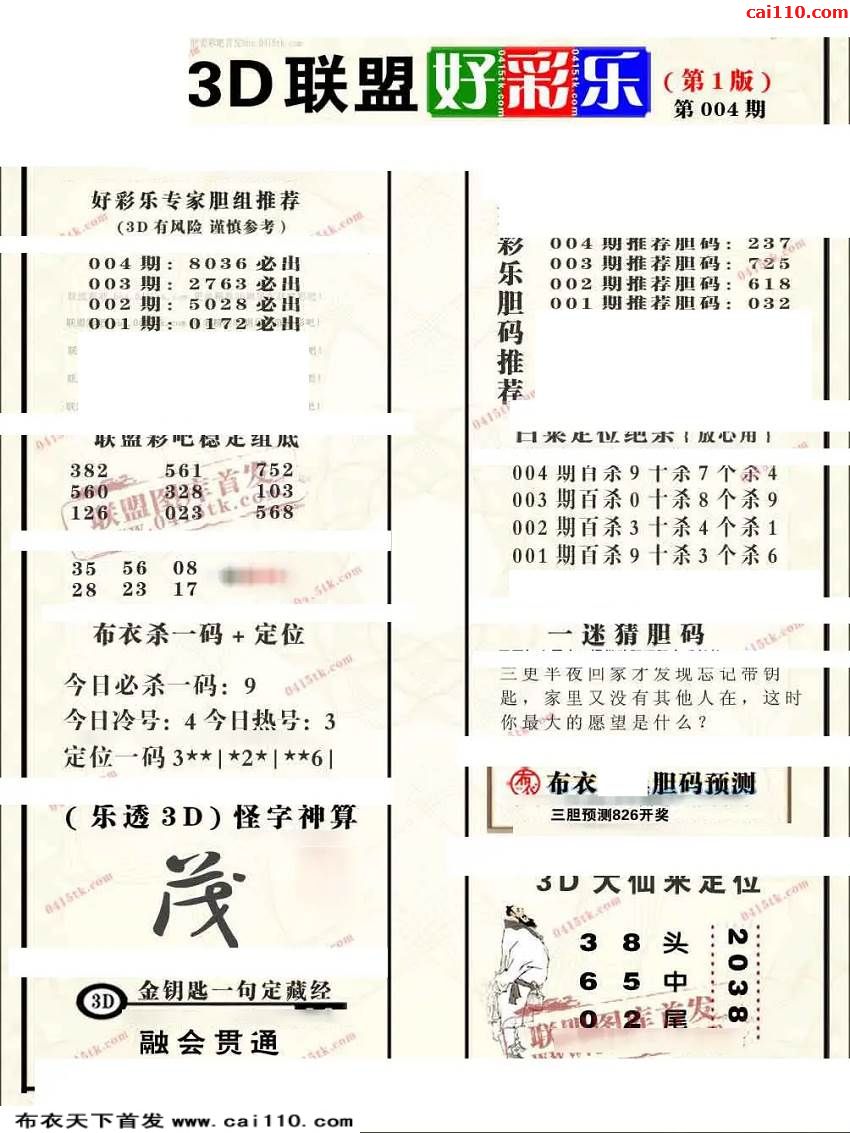 cai110.com
3D联盟好彩乐(第1版)
0415tk.com 0415tk.com
第004期
好彩乐专家胆组推荐
(3D有风险 谨慎参考)
004期: 8036必出
003期: 2763必出
002期: 5028必出
001期: 0172必出
联盟彩吧稳定组底
382 561 752
560 328 103
126 023 568
联盟图库首发
35 56 08
28 23 17
布衣杀一码+定位
今日必杀一码: 9
今日冷号: 4 今日热号: 3
定位一码3**|*2*|**6|
(乐透3D)怪字神算
茂
0415tk.com
3D 金钥匙一句定藏经
融会贯通
彩乐胆码推荐
004期推荐胆码: 237
003期推荐胆码: 725
002期推荐胆码: 618
001期推荐胆码: 032
004期百杀9十杀7个杀4
003期百杀0十杀8个杀9
002期百杀3十杀4个杀1
001期百杀9十杀3个杀6
一迷猜胆码
三更半夜回家才发现忘记带钥
匙，家里又没有其他人在，这时
你最大的愿望是什么？
布衣 胆码预测
三胆预测826开奖
3D大仙来定位
3 8 头
6 5 中
0 2 尾
2038
联盟图库首发
布衣天下首发 www.cai110.com